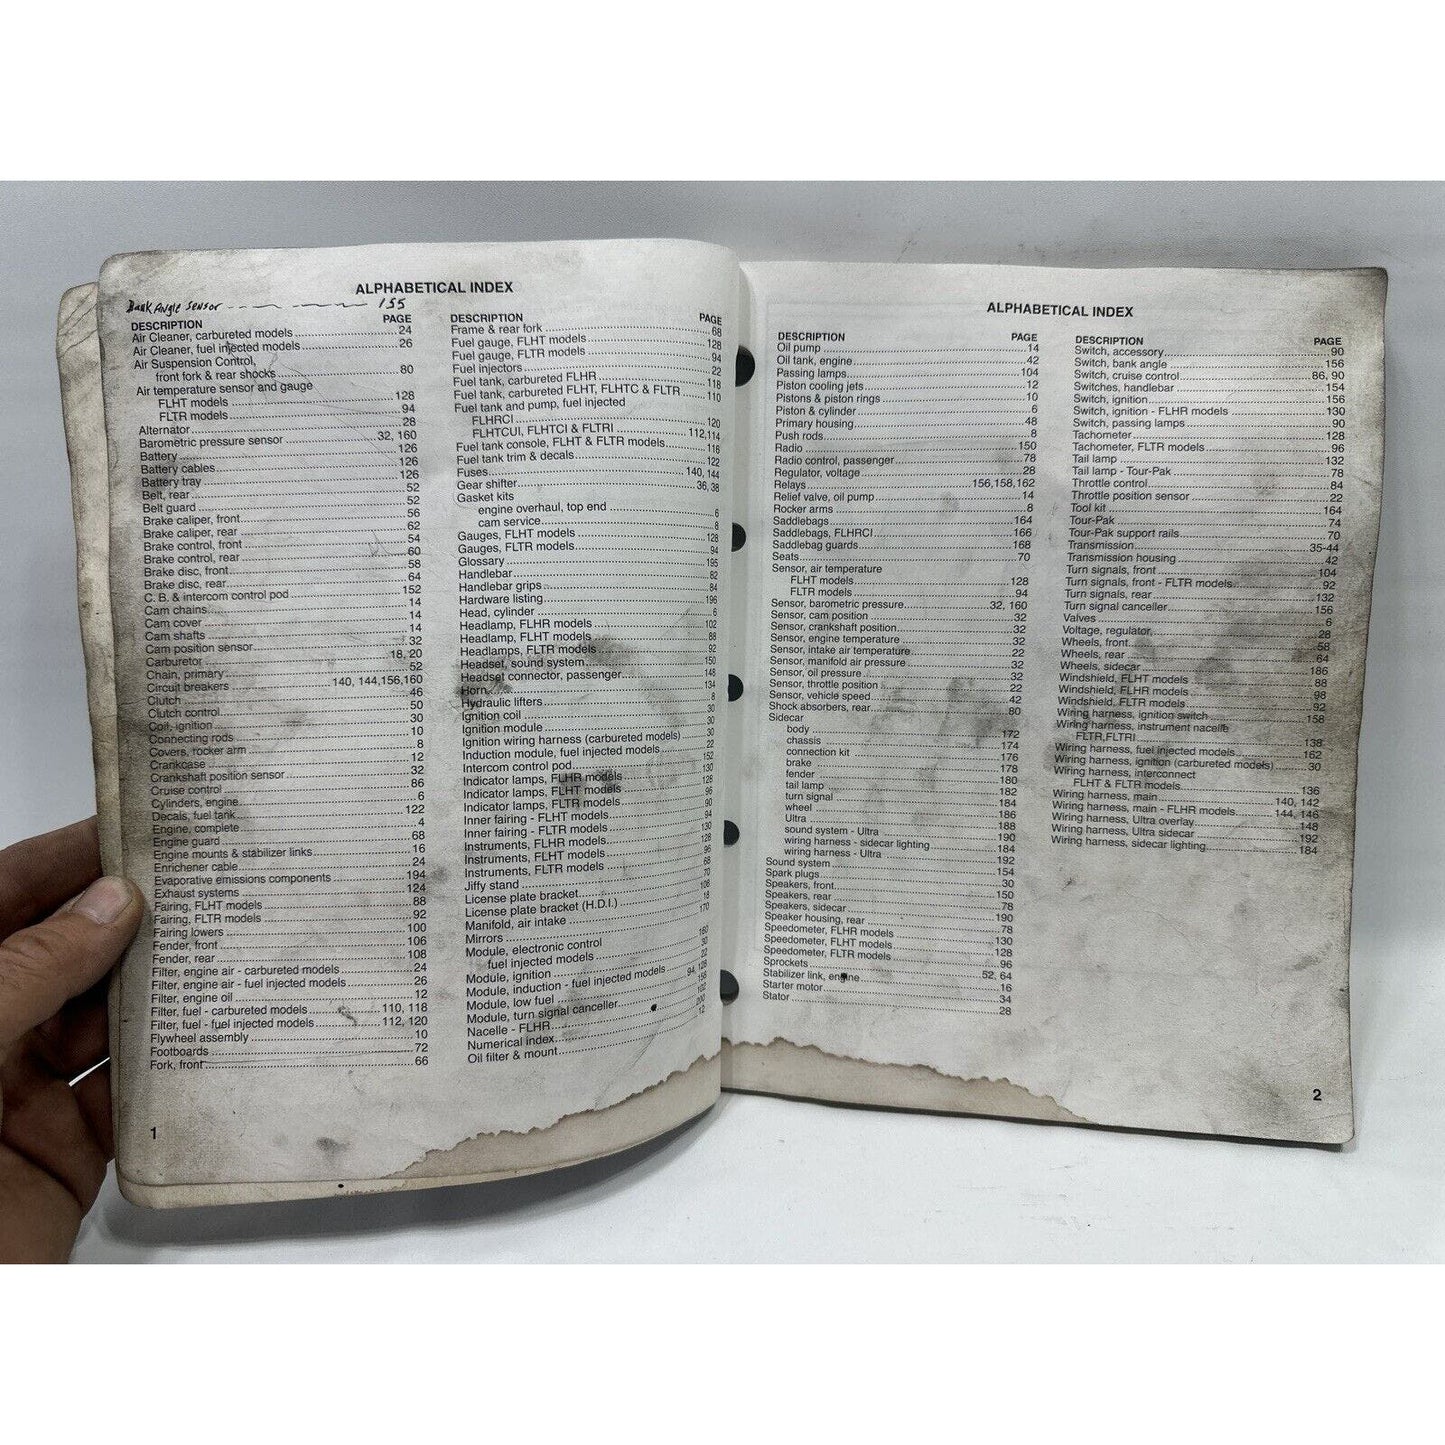 ALPHABETICAL INDEX
Bank Angle Sensor 155
DESCRIPTION PAGE
Air Cleaner, carbureted models 24
Air Cleaner, fuel injected models 26
Air Suspension Control,
front fork & rear shocks 80
Air temperature sensor and gauge
FLHT models 128
FLTR models 94
Alternator 28
Barometric pressure sensor 32, 160
Battery 126
Battery cables 126
Battery tray 126
Belt, rear 52
Belt guard 52
Brake caliper, front 56
Brake caliper, rear 62
Brake control, front 54
Brake control, rear 60
Brake disc, front 58
Brake disc, rear 64
C. B. & intercom control pod 152
Cam chains 14
Cam cover 14
Cam shafts 14
Cam position sensor 32
Carburetor 18, 20
Chain, primary 52
Circuit breakers 140, 144,156,160
Clutch 46
Clutch control 50
Coil, ignition 30
Connecting rods 10
Covers, rocker arm 8
Crankcase 12
Crankshaft position sensor 32
Cruise control 86
Cylinders, engine 6
Decals, fuel tank 122
Engine, complete 4
Engine guard 68
Engine mounts & stabilizer links 16
Enrichener cable 24
Evaporative emissions components 194
Exhaust systems 124
Fairing, FLHT models 88
Fairing, FLTR models 92
Fairing lowers 100
Fender, front 106
Fender, rear 108
Filter, engine air - carbureted models 24
Filter, engine air - fuel injected models 26
Filter, engine oil 12
Filter, fuel - carbureted models 110, 118
Filter, fuel - fuel injected models 112, 120
Flywheel assembly 10
Footboards 72
Fork, front 66
1
DESCRIPTION PAGE
Frame & rear fork 68
Fuel gauge, FLHT models 128
Fuel gauge, FLTR models 94
Fuel injectors 22
Fuel tank, carbureted FLHR 118
Fuel tank, carbureted FLHT, FLHTC & FLTR 110
Fuel tank and pump, fuel injected
FLHRCI 120
FLHTCUI, FLHTCI & FLTRI 112,114
Fuel tank console, FLHT & FLTR models 116
Fuel tank trim & decals 122
Fuses 140, 144
Gear shifter 36, 38
Gasket kits
engine overhaul, top end 6
cam service 8
Gauges, FLHT models 128
Gauges, FLTR models 94
Glossary 195
Handlebar 82
Handlebar grips 84
Hardware listing 196
Head, cylinder 6
Headlamp, FLHR models 102
Headlamp, FLHT models 88
Headlamps, FLTR models 92
Headset, sound system 150
Headset connector, passenger 148
Horn 134
Hydraulic lifters 8
Ignition coil 30
Ignition module 30
Ignition wiring harness (carbureted models) 30
Induction module, fuel injected models 22
Intercom control pod 152
Indicator lamps, FLHR models 130
Indicator lamps, FLHT models 128
Indicator lamps, FLTR models 96
Inner fairing - FLHT models 90
Inner fairing - FLTR models 94
Instruments, FLHR models 130
Instruments, FLHT models 128
Instruments, FLTR models 96
Jiffy stand 68
License plate bracket 70
License plate bracket (H.D.I.) 108
Manifold, air intake 18
Mirrors 170
Module, electronic control
fuel injected models 160
Module, ignition 30
Module, induction - fuel injected models 22
Module, low fuel 94, 128
Module, turn signal canceller 156
Nacelle - FLHR 102
Numerical index 200
Oil filter & mount 12
ALPHABETICAL INDEX
DESCRIPTION PAGE
Oil pump 14
Oil tank, engine 42
Passing lamps 104
Piston cooling jets 12
Pistons & piston rings 10
Piston & cylinder 6
Primary housing 48
Push rods 8
Radio 150
Radio control, passenger 78
Regulator, voltage 28
Relays 156,158,162
Relief valve, oil pump 14
Rocker arms 8
Saddlebags 164
Saddlebags, FLHRCI 166
Saddlebag guards 168
Seats 70
Sensor, air temperature
FLHT models 128
FLTR models 94
Sensor, barometric pressure 32, 160
Sensor, cam position 32
Sensor, crankshaft position 32
Sensor, engine temperature 32
Sensor, intake air temperature 22
Sensor, manifold air pressure 32
Sensor, oil pressure 32
Sensor, throttle position 22
Sensor, vehicle speed 42
Shock absorbers, rear 80
Sidecar
body 172
chassis 174
connection kit 176
brake 178
fender 180
tail lamp 182
turn signal 184
wheel 186
Ultra 188
sound system - Ultra 190
wiring harness - sidecar lighting 184
wiring harness - Ultra 192
Sound system 154
Spark plugs 30
Speakers, front 150
Speakers, rear 78
Speakers, sidecar 190
Speaker housing, rear 78
Speedometer, FLHR models 130
Speedometer, FLHT models 128
Speedometer, FLTR models 96
Sprockets 52, 64
Stabilizer link, engine 16
Starter motor 34
Stator 28
DESCRIPTION PAGE
Switch, accessory 90
Switch, bank angle 156
Switch, cruise control 86, 90
Switches, handlebar 154
Switch, ignition 156
Switch, ignition - FLHR models 130
Switch, passing lamps 90
Tachometer 128
Tachometer, FLTR models 96
Tail lamp 132
Tail lamp - Tour-Pak 78
Throttle control 84
Throttle position sensor 22
Tool kit 164
Tour-Pak 74
Tour-Pak support rails 70
Transmission 35-44
Transmission housing 42
Turn signals, front 104
Turn signals, front - FLTR models 92
Turn signals, rear 132
Turn signal canceller 156
Valves 6
Voltage, regulator, 28
Wheels, front 58
Wheels, rear 64
Wheels, sidecar 186
Windshield, FLHT models 88
Windshield, FLHR models 98
Windshield, FLTR models 92
Wiring harness, ignition switch 158
Wiring harness, instrument nacelle
FLTR,FLTRI 138
Wiring harness, fuel injected models 162
Wiring harness, ignition (carbureted models) 30
Wiring harness, interconnect
FLHT & FLTR models 136
Wiring harness, main 140, 142
Wiring harness, main - FLHR models 144, 146
Wiring harness, Ultra overlay 148
Wiring harness, Ultra sidecar 192
Wiring harness, sidecar lighting 184
2